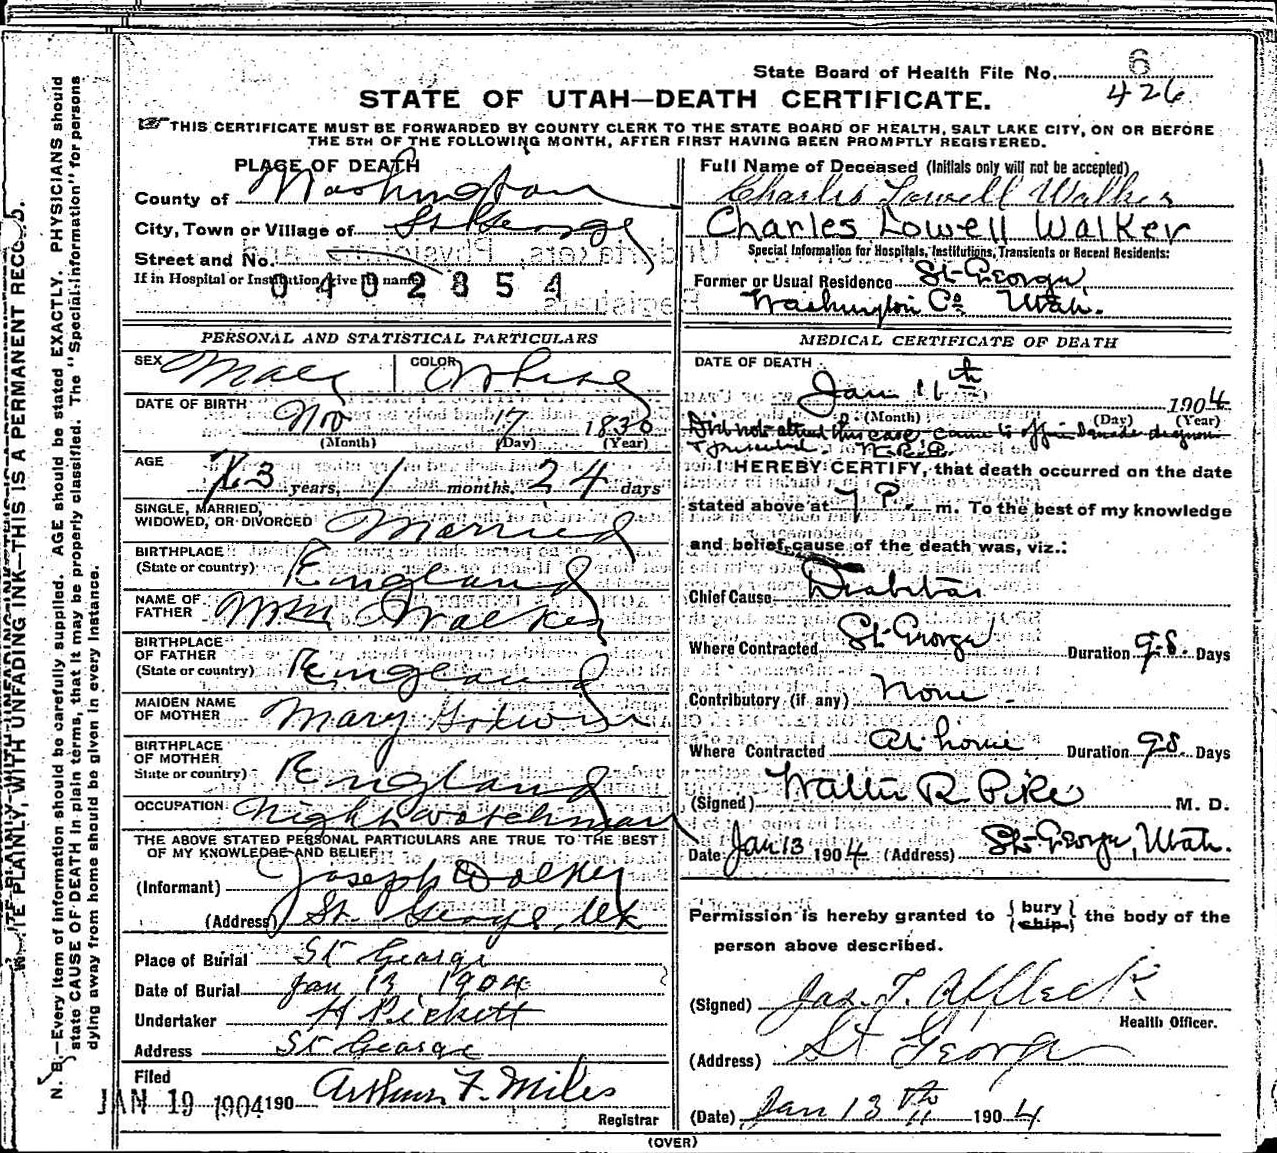 State Board of Health File No. 6
426
STATE OF UTAH—DEATH CERTIFICATE.
THIS CERTIFICATE MUST BE FORWARDED BY COUNTY CLERK TO THE STATE BOARD OF HEALTH, SALT LAKE CITY, ON OR BEFORE
THE 5TH OF THE FOLLOWING MONTH, AFTER FIRST HAVING BEEN PROMPTLY REGISTERED.
PLACE OF DEATH
County of Washington
City, Town or Village of St George
Street and No.
If in Hospital or Institution give its name
0402354
Full Name of Deceased (Initials only will not be accepted)
Charles Lowell Walker
Charles Lowell Walker
Special Information for Hospitals, Institutions, Transients or Recent Residents:
Former or Usual Residence St George,
Washington Co Utah.
PERSONAL AND STATISTICAL PARTICULARS
SEX Male COLOR White
DATE OF BIRTH Nov 17 1830
(Month) (Day) (Year)
AGE 73 years, 1 months, 24 days
SINGLE, MARRIED,
WIDOWED, OR DIVORCED Married
BIRTHPLACE
(State or country) England
NAME OF
FATHER Wm Walker
BIRTHPLACE
OF FATHER
(State or country) England
MAIDEN NAME
OF MOTHER Mary
BIRTHPLACE
OF MOTHER
State or country) England
OCCUPATION Night Watchman
THE ABOVE STATED PERSONAL PARTICULARS ARE TRUE TO THE BEST
OF MY KNOWLEDGE AND BELIEF
(Informant) Joseph Walker
(Address) St. George, Ut
Place of Burial St George
Date of Burial Jan 13 1904
Undertaker H Pickett
Address St George
Filed
JAN 19 1904 190 Arthur F. Miles
Registrar
MEDICAL CERTIFICATE OF DEATH
DATE OF DEATH
Jan 11th 1904
(Month) (Day) (Year)
Did not attend this case, came to office
W.R.P.
I HEREBY CERTIFY, that death occurred on the date
stated above at 7 P. m. To the best of my knowledge
and belief, cause of the death was, viz.:
Chief Cause Diabetes
Where Contracted St George Duration 98. Days
Contributory (if any) None
Where Contracted At home Duration 98. Days
(Signed) Walter R Pike M. D.
Date Jan 13 1904 (Address) St George, Utah.
Permission is hereby granted to { bury } the body of the
{ ship. }
person above described.
(Signed) Jas. T. Affleck
Health Officer.
(Address) St George
(Date) Jan 13th 1904
(OVER)
WRITE PLAINLY, WITH UNFADING INK—THIS IS A PERMANENT RECORD.
N. B.—Every item of information should be carefully supplied. AGE should be stated EXACTLY. PHYSICIANS should
state CAUSE OF DEATH in plain terms, that it may be properly classified. The "Special Information" for persons
dying away from home should be given in every instance.